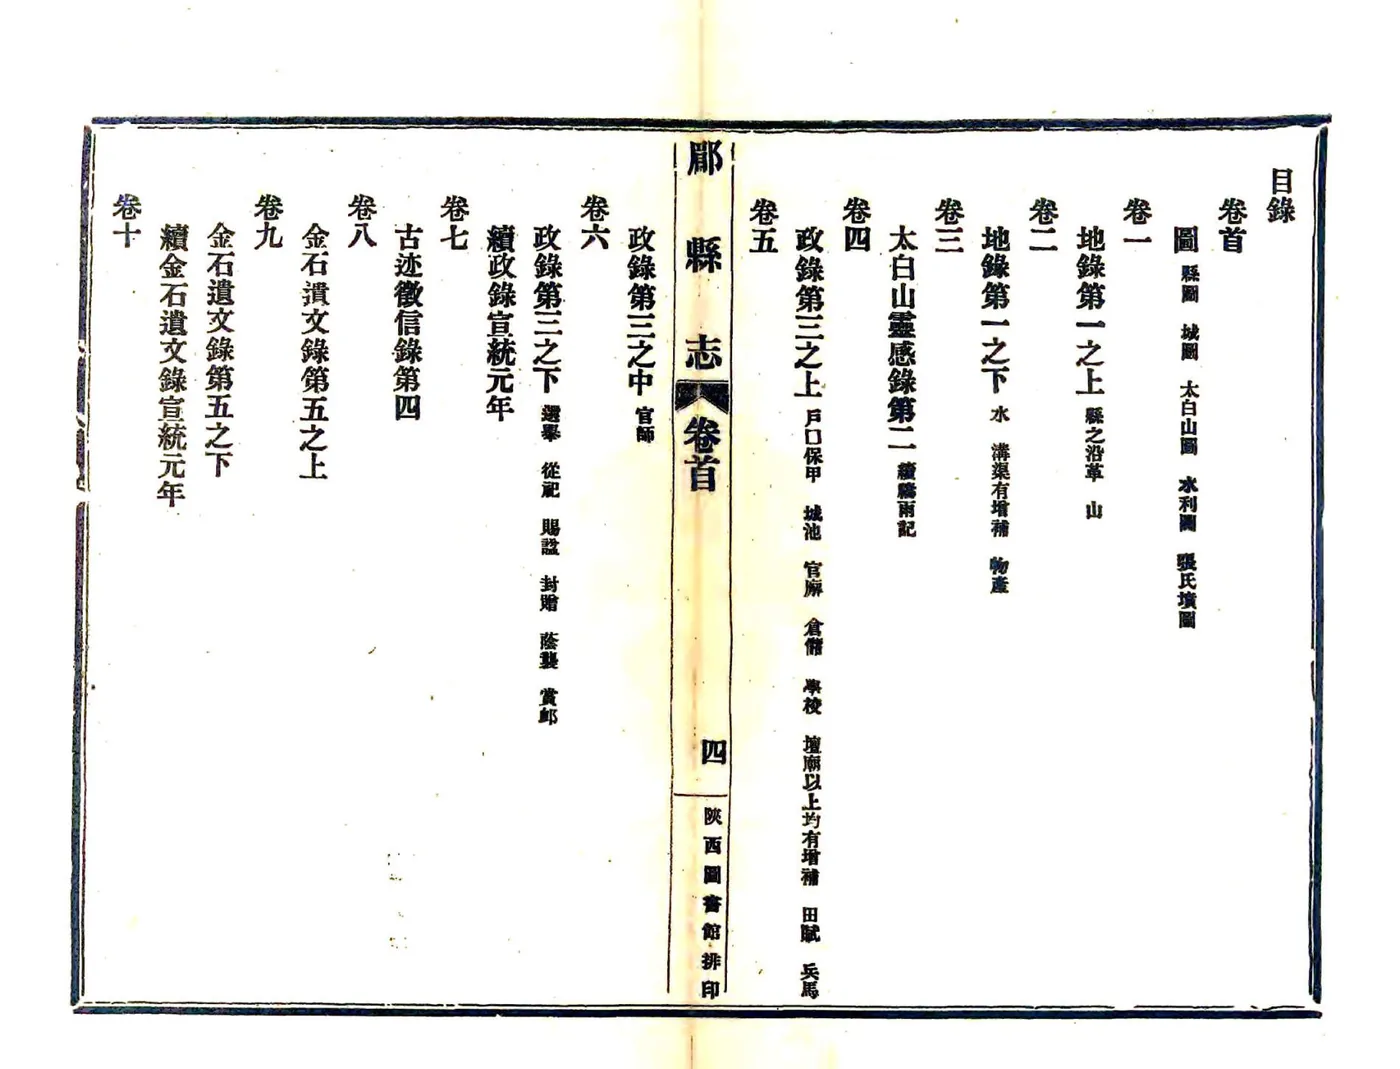 目錄
卷首
圖 縣圖 城圖 太白山圖 水利圖 張氏墳圖
卷一
地錄第一之上 縣之沿革 山
卷二
地錄第一之下 水 溝渠有增補 物產
卷三
太白山靈感錄第二 續禱雨記
卷四
政錄第三之上 戶口保甲 城池 官廨 倉儲 學校 壇廟以上均有增補 田賦 兵馬
卷五
郿縣志 卷首 四 陝西圖書館排印
政錄第三之中 官師
卷六
政錄第三之下 選舉 從祀 賜諡 封贈 蔭襲 賞卹
續政錄宣統元年
卷七
古迹徵信錄第四
卷八
金石遺文錄第五之上
卷九
金石遺文錄第五之下
續金石遺文錄宣統元年
卷十